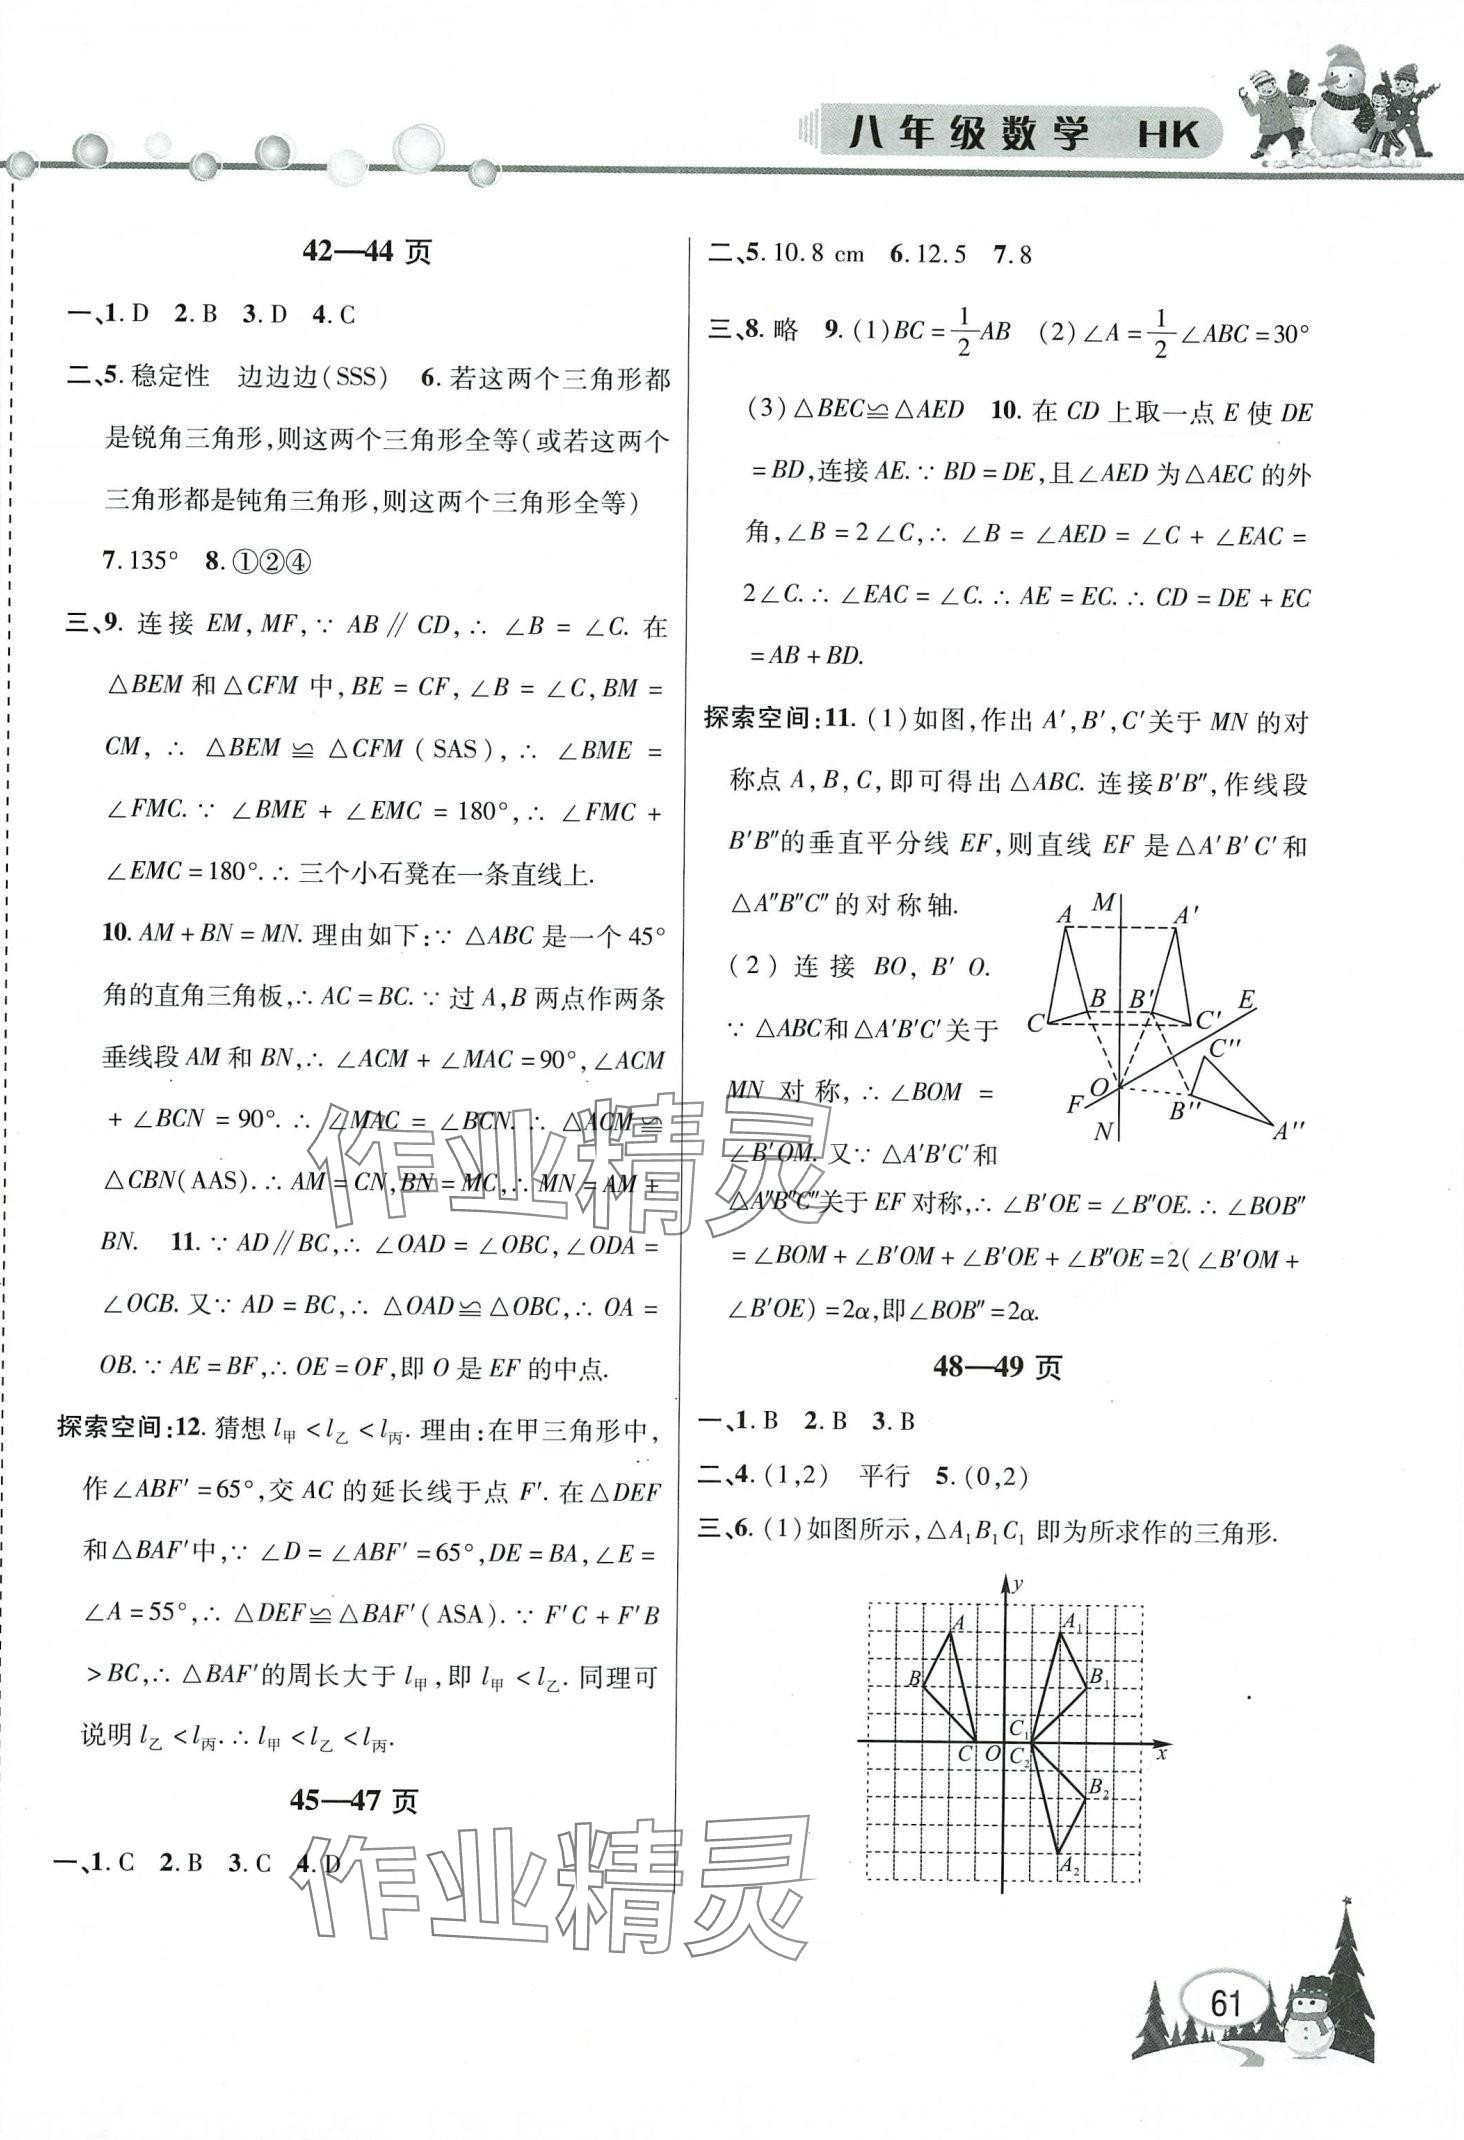 八年级数学 HK
42—44 页
一、1. D 2. B 3. D 4. C
二、5. 稳定性 边边边(SSS) 6. 若这两个三角形都
是锐角三角形,则这两个三角形全等(或若这两个
三角形都是钝角三角形,则这两个三角形全等)
7. 135° 8. ①②④
三、9. 连接 EM, MF, ∵ AB∥CD, ∴ ∠B = ∠C. 在
△BEM 和 △CFM 中, BE = CF, ∠B = ∠C, BM =
CM, ∴ △BEM ≌ △CFM (SAS), ∴ ∠BME =
∠FMC. ∵ ∠BME + ∠EMC = 180°, ∴ ∠FMC +
∠EMC = 180°. ∴ 三个小石凳在一条直线上.
10. AM + BN = MN. 理由如下: ∵ △ABC 是一个 45°
角的直角三角板, ∴ AC = BC. ∵ 过 A, B 两点作两条
垂线段 AM 和 BN, ∴ ∠ACM + ∠MAC = 90°, ∠ACM
+ ∠BCN = 90°. ∴ ∠MAC = ∠BCN. ∴ △ACM≌
△CBN(AAS). ∴ AM = CN, BN = MC, ∴ MN = AM +
BN. 11. ∵ AD∥BC, ∴ ∠OAD = ∠OBC, ∠ODA =
∠OCB. 又∵ AD = BC, ∴ △OAD≌△OBC, ∴ OA =
OB. ∵ AE = BF, ∴ OE = OF, 即 O 是 EF 的中点.
探索空间: 12. 猜想 l甲 < l乙 < l丙. 理由: 在甲三角形中,
作∠ABF′ = 65°, 交 AC 的延长线于点 F′. 在△DEF
和△BAF′中, ∵ ∠D = ∠ABF′ = 65°, DE = BA, ∠E =
∠A = 55°, ∴ △DEF≌△BAF′(ASA). ∵ F′C + F′B
> BC, ∴ △BAF′的周长大于 l甲, 即 l甲 < l乙. 同理可
说明 l乙 < l丙. ∴ l甲 < l乙 < l丙.
45—47 页
一、1. C 2. B 3. C 4. D
二、5. 10.8 cm 6. 12.5 7. 8
三、8. 略 9. (1)BC = 1/2 AB (2)∠A = 1/2 ∠ABC = 30°
(3)△BEC≌△AED 10. 在 CD 上取一点 E 使 DE
= BD, 连接 AE. ∵ BD = DE, 且∠AED 为△AEC 的外
角, ∠B = 2∠C, ∴ ∠B = ∠AED = ∠C + ∠EAC =
2∠C. ∴ ∠EAC = ∠C. ∴ AE = EC. ∴ CD = DE + EC
= AB + BD.
探索空间: 11. (1)如图,作出 A′, B′, C′关于 MN 的对
称点 A, B, C, 即可得出△ABC. 连接B′B″, 作线段
B′B″的垂直平分线 EF, 则直线 EF 是△A′B′C′和
△A″B″C″的对称轴.
(2) 连接 BO, B′O.
∵ △ABC和△A′B′C′关于
MN 对称, ∴ ∠BOM =
∠B′OM. 又∵ △A′B′C′和
△A″B″C″关于 EF 对称, ∴ ∠B′OE = ∠B″OE. ∴ ∠BOB″
= ∠BOM + ∠B′OM + ∠B′OE + ∠B″OE = 2(∠B′OM +
∠B′OE) = 2α, 即∠BOB″ = 2α.
M
A A′
B B′ E
C C′
C″
O
F B″
N A″
48—49 页
一、1. B 2. B 3. B
二、4. (1,2) 平行 5. (0,2)
三、6. (1)如图所示, △A₁B₁C₁ 即为所求作的三角形.
y
A A₁
B B₁
C₁
C O C₂ x
B₂
A₂
61
作业精灵
作业精灵